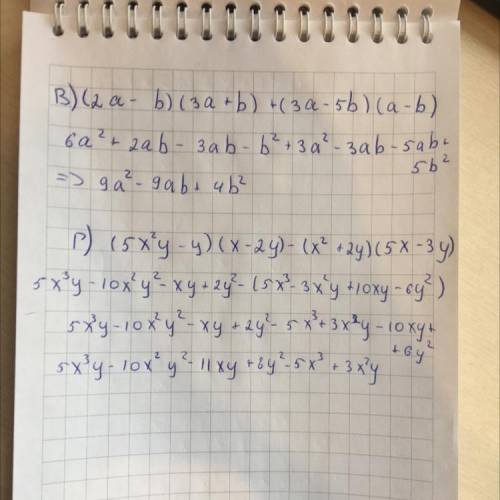 В) (2a - b)(3a + b) + (3a - 5b)(a - b)
6a² + 2ab - 3ab - b² + 3a² - 3ab - 5ab + 5b²
=> 9a² - 9ab + 4b²
Г) (5x²y - y)(x - 2y) - (x² + 2y)(5x - 3y)
5x³y - 10x²y² - xy + 2y² - (5x³ - 3x²y + 10xy - 6y²)
5x³y - 10x²y² - xy + 2y² - 5x³ + 3x²y - 10xy + + 6y²
5x³y - 10x²y² - 11xy + 8y² - 5x³ + 3x²y